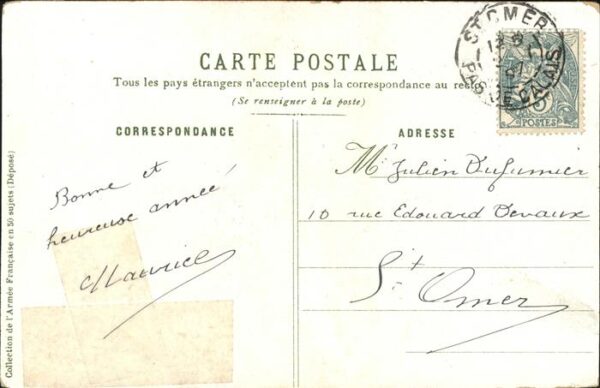 CARTE POSTALE
Tous les pays étrangers n'acceptent pas la correspondance au
(Se renseigner à la poste)
CORRESPONDANCE
ADRESSE
Bonne et
heureuse année
Maurice
Mr Julien Dufumier
10 rue Edouard Devaux
St Omer
ST OMER
PAS DE CALAIS
5
POSTES
Collection de l'Armée Française en 50 sujets (Déposé)